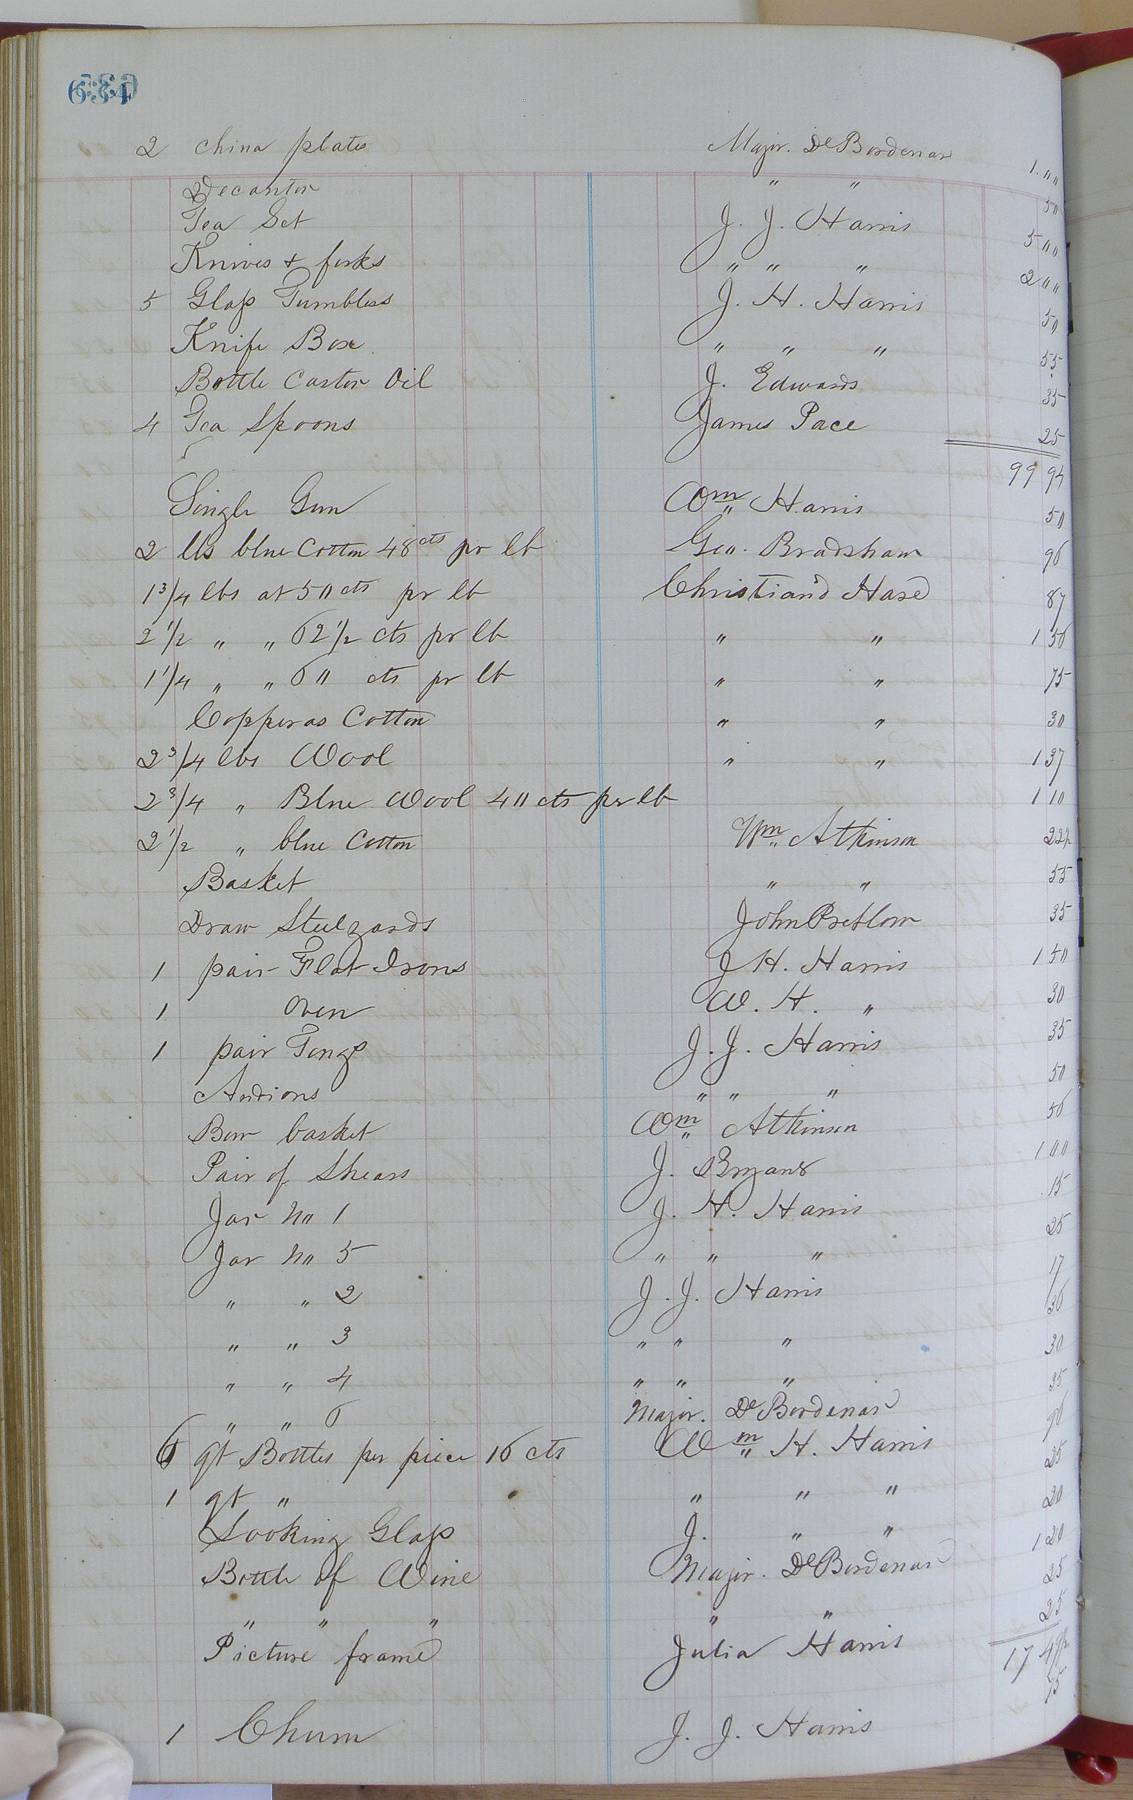 634
2 China plates Major. De Bordenave 1.00
Decanter " " 50
Tea Set J. J. Harris 5 00
Knives + forks " " " 2 00
5 Glass Tumblers J. H. Harris 50
Knife Box " " " 55
Bottle Castor Oil J. Edwards 35
4 Tea Spoons James Pace 25
99 94
Single Gun Wm Harris 50
2 lbs blue Cotton 48 cts pr lb Geo. Bradshaw 96
1 3/4 lbs at 50 cts pr lb Christian'd Hare 87
2 1/2 " " 62 1/2 cts pr lb " " 1 56
1 1/4 " " 60 cts pr lb " " 75
Copperas Cotton " " 30
2 3/4 lbs Wool " " 1 37
2 3/4 " Blue Wool 40 cts per lb 1 10
2 1/2 " blue Cotton Wm Atkinson
Basket " " 55
Draw Steelyards John Pretlow 35
1 pair Flat Irons J H. Harris 1 50
1 Oven W. H. " 30
1 pair Tongs J. J. Harris 35
Andions " " " 50
Bow basket Wm Atkinson 56
Pair of Shears J. Bryant 1 00
Jar No 1 J. H. Harris 15
Jar No 5 " " " 25
" " 2 J. J. Harris 17
" " 3 " " " 36
" " 4 " " " 30
" " 6 Major. De Bordenave 35
6 qt Bottles per piece 16 cts Wm H. Harris 96
1 qt " " " " 25
Looking Glass J. " " 20
Bottle of Wine Major. De Bordenave 1 20
" " " " " 25
Picture frame Julia Harris 25
17
1 Churn J. J. Harris 75